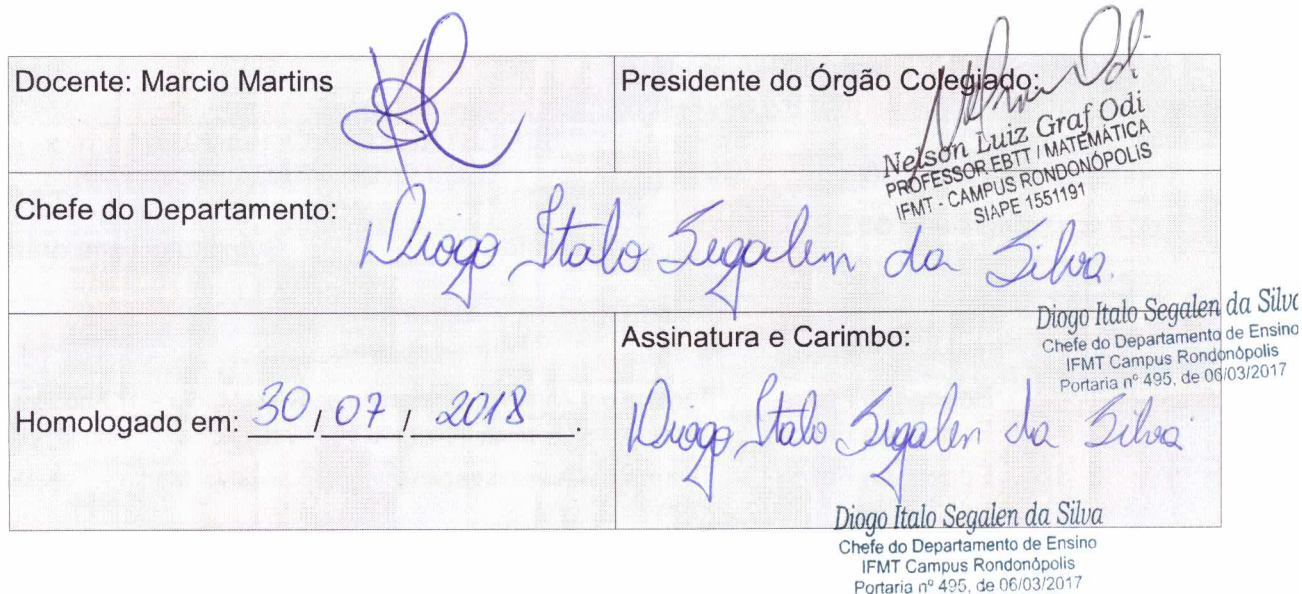 Docente: Marcio Martins
Presidente do Órgão Colegiado:
Nelson Luiz Graf Odi
PROFESSOR EBTT / MATEMÁTICA
IFMT - CAMPUS RONDONÓPOLIS
SIAPE 1551191
Chefe do Departamento:
Diogo Italo Segalen da Silva.
Diogo Italo Segalen da Silva
Chefe do Departamento de Ensino
IFMT Campus Rondonópolis
Portaria nº 495, de 06/03/2017
Homologado em: 30/07/2018.
Assinatura e Carimbo:
Diogo Italo Segalen da Silva
Diogo Italo Segalen da Silva
Chefe do Departamento de Ensino
IFMT Campus Rondonópolis
Portaria nº 495, de 06/03/2017